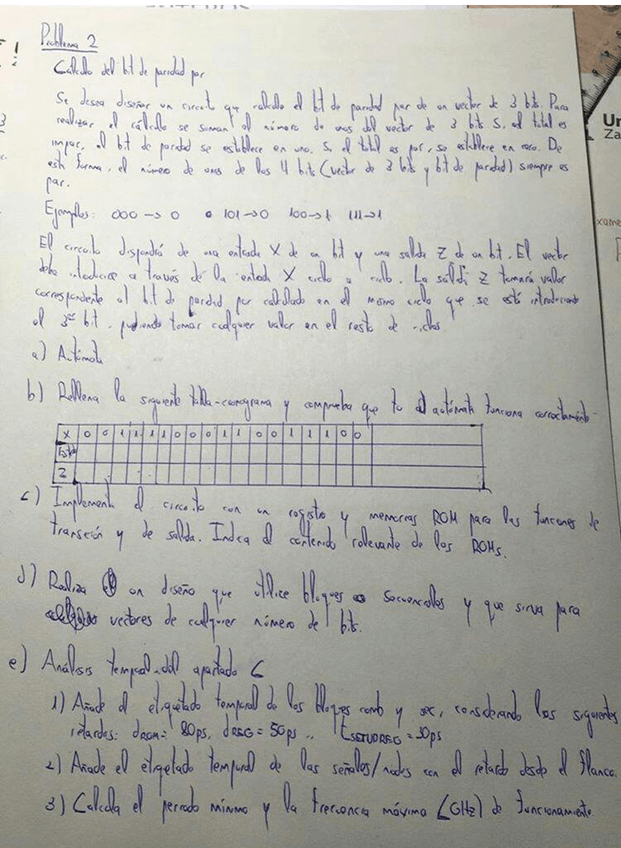 Problema 2
Calculo del bit de paridad par
Se desea diseñar un circuito que calcule el bit de paridad par de un vector de 3 bits. Para
realizar el cálculo se suman el número de unos del vector de 3 bits. Si el total es
impar, el bit de paridad se establece en uno. Si el total es par, se establece en cero. De
esta forma, el número de unos de los 4 bits (vector de 3 bits y bit de paridad) siempre es
par.
Ejemplos: 000 → 0 101 → 0 100 → 1 111 → 1
El circuito dispondrá de una entrada X de un bit y una salida Z de un bit. El vector
debe introducirse a través de la entrada X ciclo a ciclo. La salida Z tomará valor
correspondiente al bit de paridad par calculado en el mismo ciclo que se está introduciendo
el 3er bit, pudiendo tomar cualquier valor en el resto de ciclos
a) Autómata
b) Rellena la siguiente tabla-cronograma y comprueba que tu autómata funciona correctamente
X 0 0 1 1 1 1 0 0 0 1 1 0 0 1 1 1 0 0
Est
Z
c) Implementa el circuito con un registro y memorias ROM para las funciones de
transición y de salida. Indica el contenido relevante de las ROMs.
d) Realiza un diseño que utilice bloques secuenciales y que sirva para
vectores de cualquier número de bits.
e) Análisis temporal del apartado C
1) Añade el etiquetado temporal de los bloques comb y sec, considerando los siguientes
retardos: dROM = 80ps, dREG = 50ps, tSETUPREG = 30ps
2) Añade el etiquetado temporal de las señales/nodos con el retardo desde el flanco.
3) Calcula el periodo mínimo y la frecuencia máxima (GHz) de funcionamiento.
Un
Za